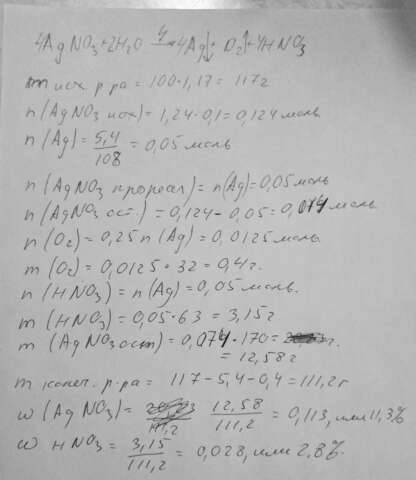 4AgNO₃+2H₂O э→ 4Ag↓+O₂↑+4HNO₃
m исх. р-ра = 100·1,17 = 117г
n(AgNO₃ исх) = 1,24·0,1 = 0,124 моль
n(Ag) = 5,4/108 = 0,05 моль
n(AgNO₃ прореаг) = n(Ag) = 0,05 моль
n(AgNO₃ ост.) = 0,124 - 0,05 = 0,074 моль
n(O₂) = 0,25 n(Ag) = 0,0125 моль
m(O₂) = 0,0125·32 = 0,4г.
n(HNO₃) = n(Ag) = 0,05 моль.
m(HNO₃) = 0,05·63 = 3,15г
m(AgNO₃ ост) = 0,074·170 = г.
= 12,58г
m конеч. р-ра = 117 - 5,4 - 0,4 = 111,2г
w(AgNO₃) = 12,58/111,2 = 0,113, или 11,3%
w HNO₃ = 3,15/111,2 = 0,028, или 2,8%.